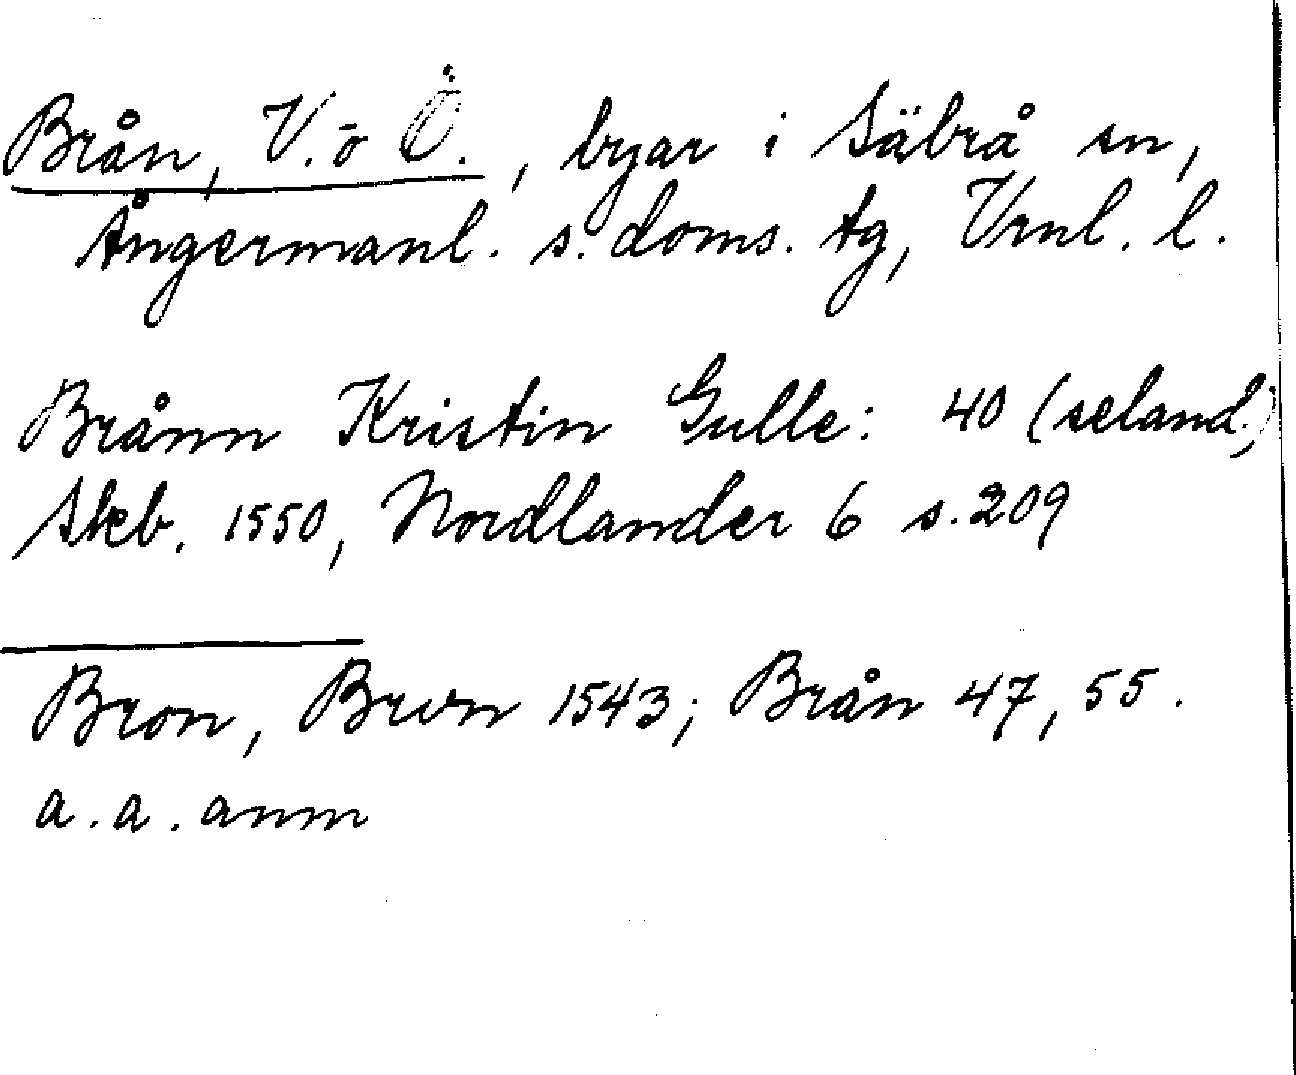 Brån, V. o Ö., byar i Säbrå sn,
Ångermanl. s. doms. tg, Vrnl. l.
Brånn Kristin Gulle: 40 (seland.)
Skb. 1550, Nordlander 6 s. 209
Bron, Brvn 1543; Brån 47, 55.
a. a. anm